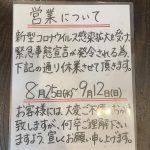 営業について
新型コロナウイルス感染拡大を受け、
緊急事態宣言が発令される為、
下記の通り休業させて頂きます。
8月25日(水)〜9月12日(日)
お客様には、大変ご不便おかけ
致しますが、何卒ご理解下さい
ますよう、宜しくお願い申し上げます。